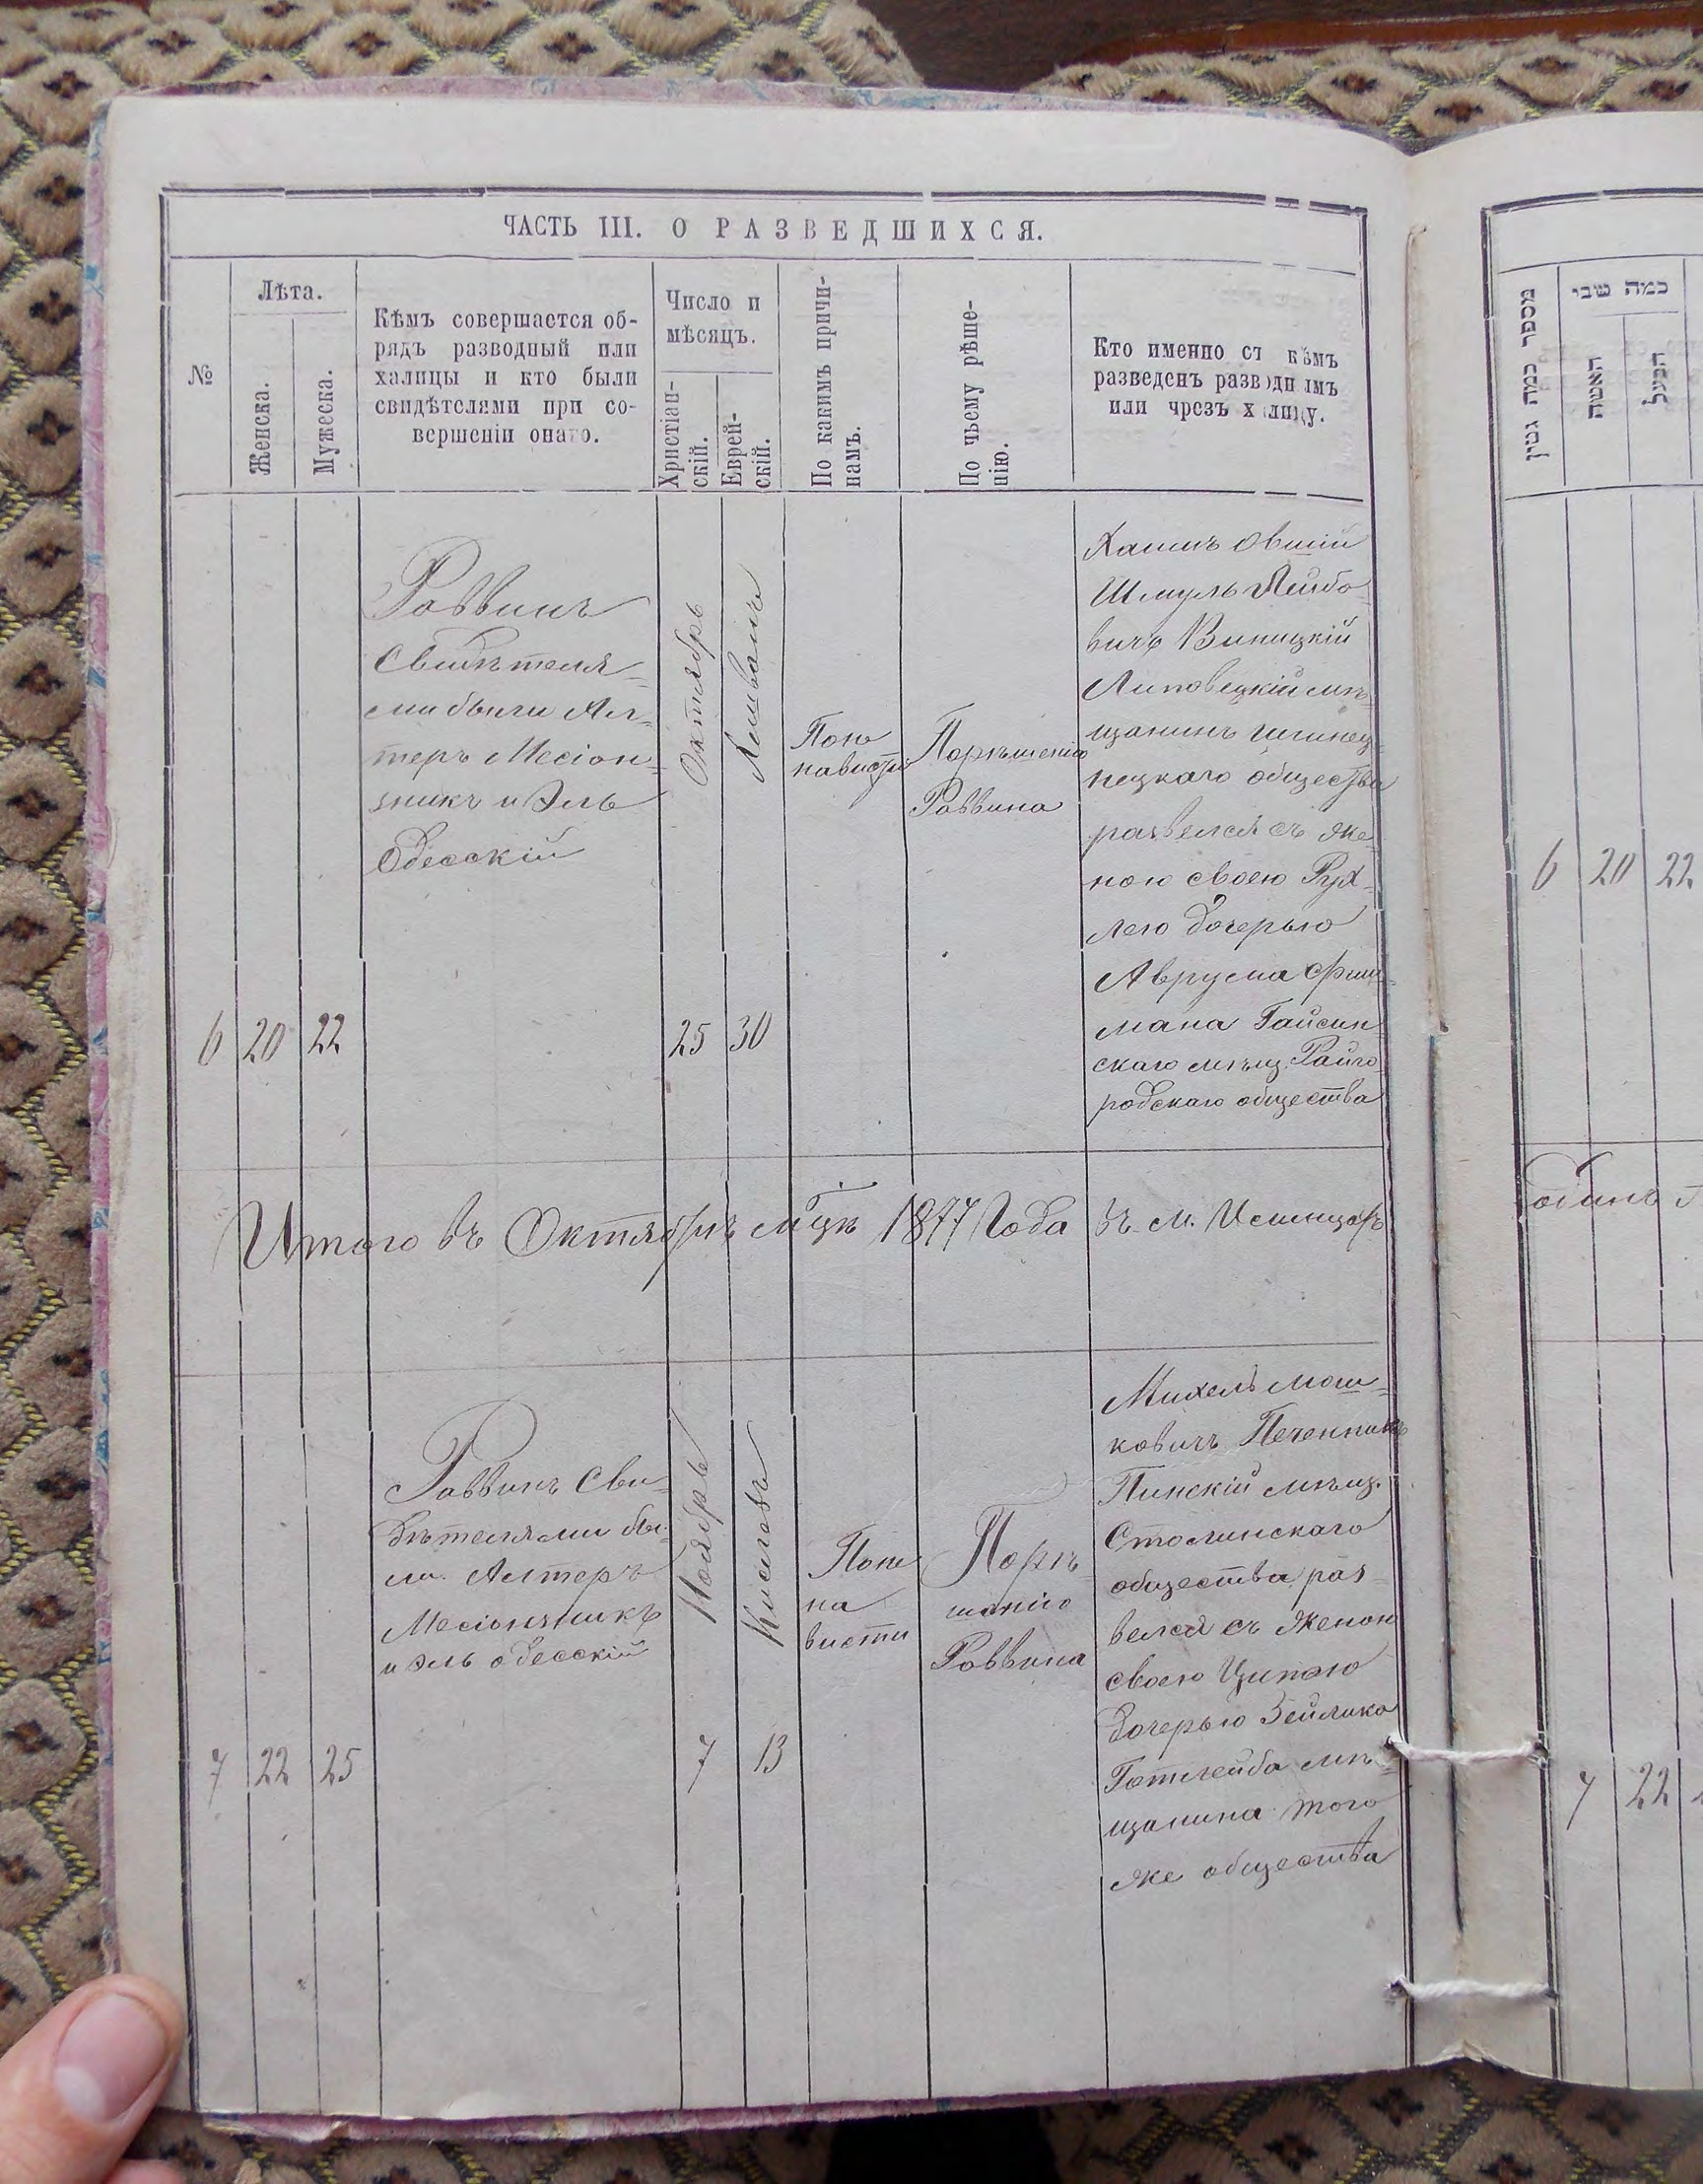 ЧАСТЬ III. О РАЗВЕДШИХСЯ.
№
Лѣта.
Женска.
Мужеска.
Кѣмъ совершается об-
рядъ разводный или
халицы и кто были
свидѣтелями при со-
вершеніи онаго.
Число и
мѣсяцъ.
Христіан-
скій.
Еврей-
скій.
По какимъ причи-
намъ.
По чьему рѣше-
нію.
Кто именно съ кѣмъ
разведенъ разводнымъ
или чрезъ халицу.
6
20
22
Раввинъ
Свидѣтеля-
ми были Ал-
теръ Месіон-
зникъ и Эль
Одесскій
Октябрь
25
Хешванъ
30
По не
навист
По рѣшенію
Раввина
Хаимъ Овшій
Шмуль Лейбо-
вичъ Виницкій
Липовецкій мѣ-
щанинъ
нецкаго общества
развелся съ же-
ною своею Рух-
лею дочерью
Аврума Фиш-
мана Гайсин
скаго мѣщ. Райго
родскаго общества
Итого въ Октябрѣ мцѣ 1877 Года въ м.
7
22
25
Раввинъ Сви-
дѣтелями бы-
ли Алтеръ
Месіонзникъ
и Эль Одесскій
Ноябрь
7
Кислевъ
13
По не
на
висти
По рѣ-
шенію
Раввина
Михель Мош-
ковичъ Печенникъ
Пинскій мѣщ.
Столинскаго
общества раз-
велся съ женою
своею Ципою
дочерью Зейлика
Готлейба мѣ-
щанина того
же общества
מספר כמה גטין
כמה שני
האשה
הבעל
6
20
22
7
22